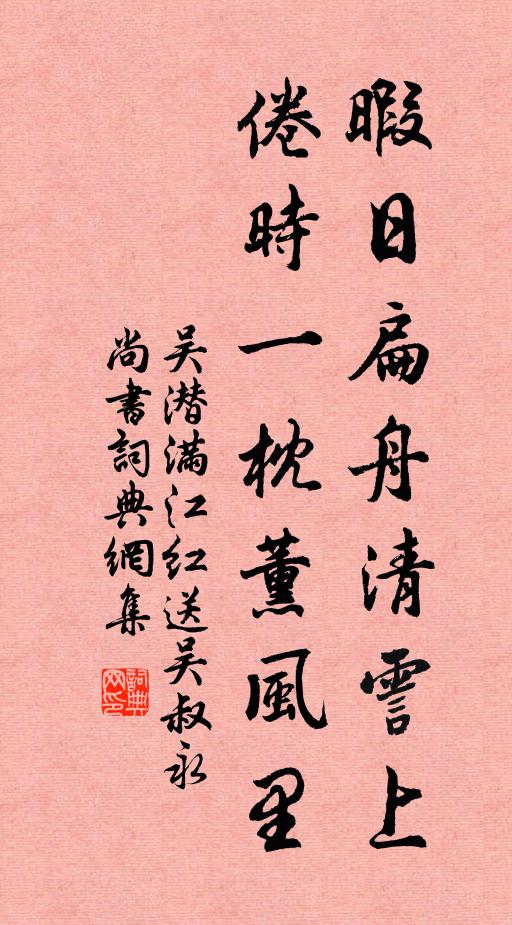 暇日扁舟清霅上
倦時一枕薰風里
吴潜满江红送吴叔永
尚書詞典網集
詞典
网印